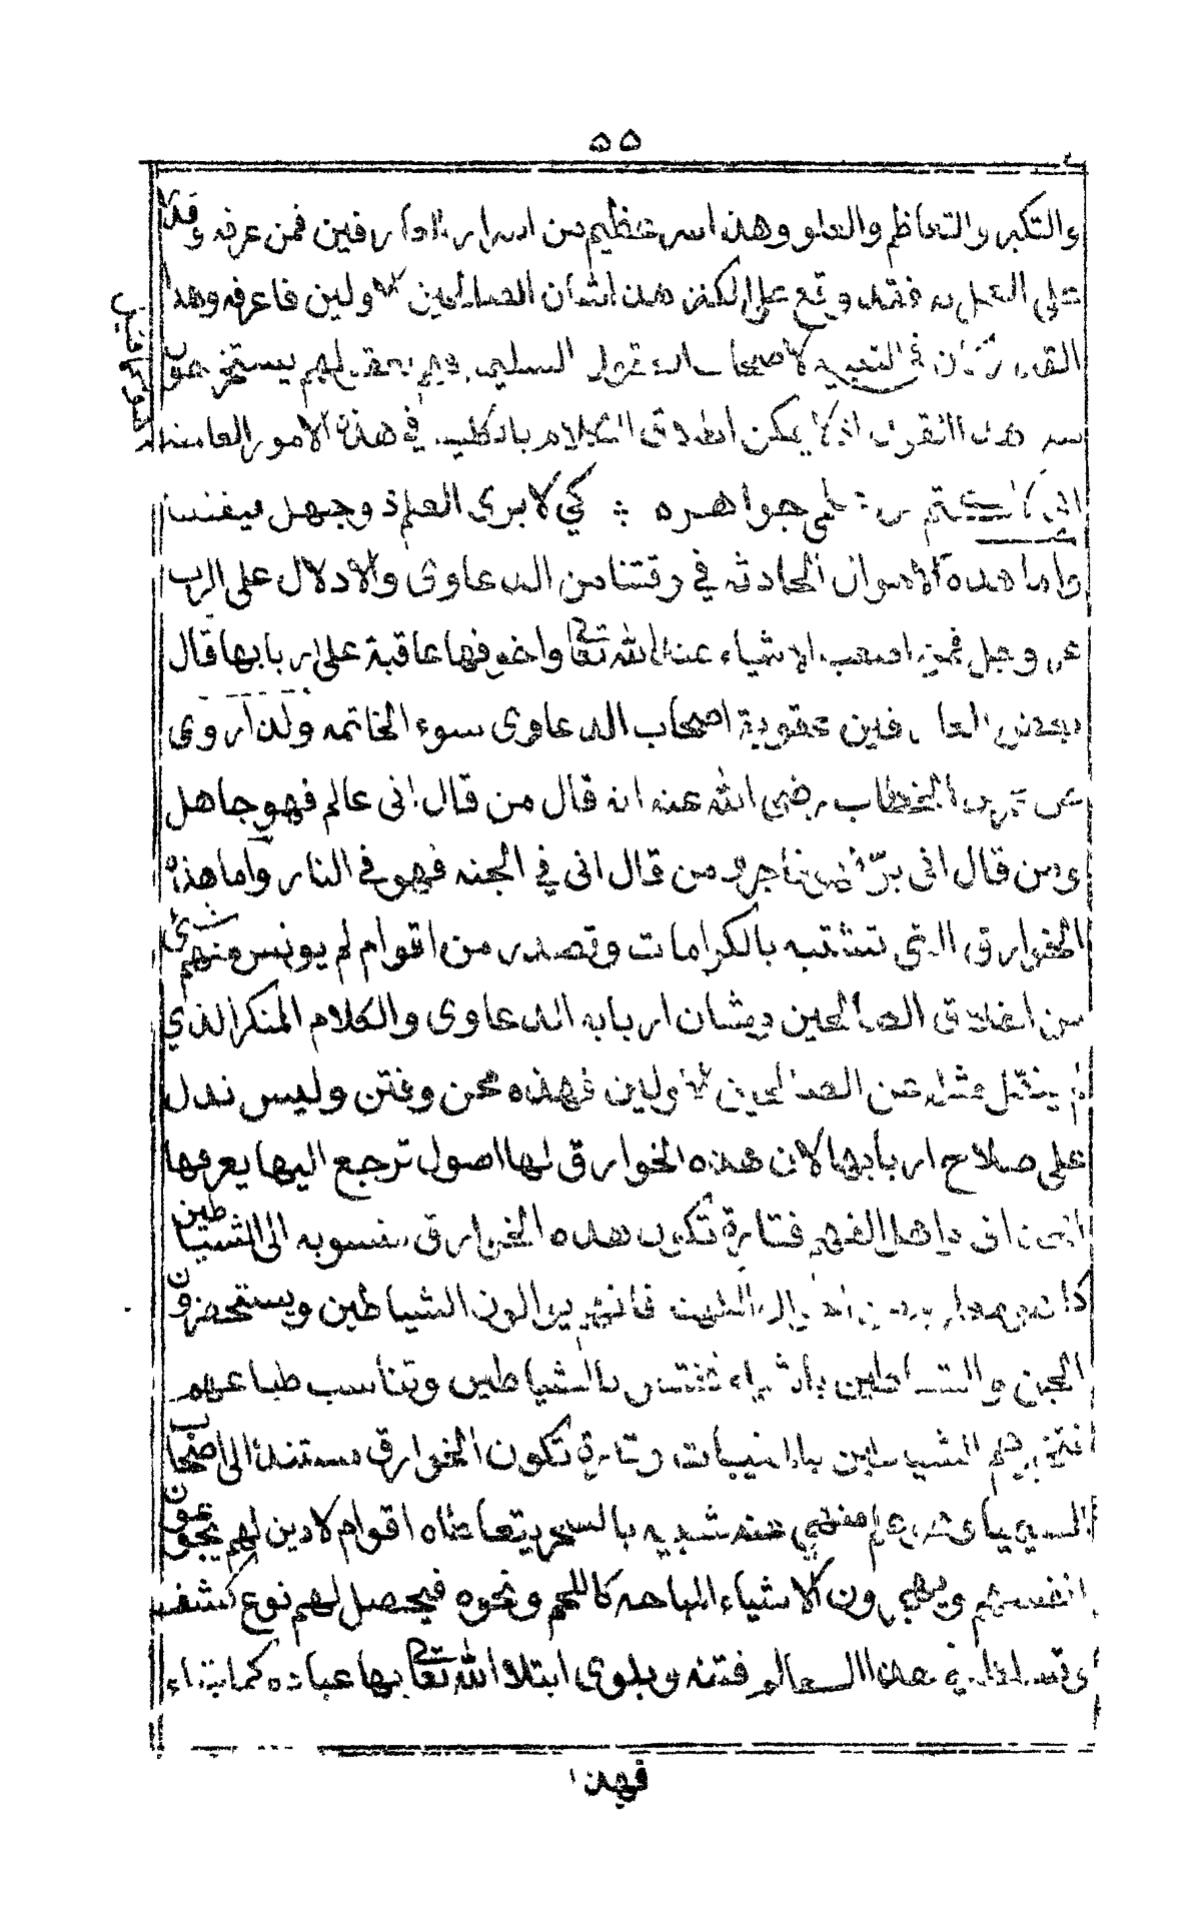 ٥٥
والتكبر والتعاظم والعلو وهذا سر عظيم من اسرار العارفين فمن عرفه وقدر
على العمل به فقد وقع على الكنز هذا شأن الصالحين الاولين فاعرفه وهذا
القدر كان في التنبيه لاصحاب العقول السليمه يستخرجون
هذا اذ لا يمكن اطلاق الكلام بالكليه في هذه الامور الغامضه
اني لاكتم من علمي جواهره ؞ كي لا يرى العلم ذو جهل فيفتتنا
واما هذه الاحوال الحادثه في وقتنا من الدعاوى والادلال على الرب
عز وجل فمن اصعب الاشياء عند الله تعالى واخوفها عاقبة على اربابها قال
بعض العارفين عقوبة اصحاب الدعاوى سوء الخاتمه ولذا روى
عن عمر بن الخطاب رضى الله عنه انه قال من قال انى عالم فهو جاهل
ومن قال انى برّ فهو فاجر ومن قال انى في الجنه فهو في النار واما هذه
الخوارق التي تشتبه بالكرامات وتصدر من اقوام لم يونس منهم شئ
من اخلاق الصالحين وشان اربابه الدعاوى والكلام المنكر الذي
لم ينقل مثله عن الصالحين الاولين فهذه محن وفتن وليس تدل
على صلاح اربابها لان هذه الخوارق لها اصول ترجع اليها يعرفها
اهل الفهم فتارة تكون هذه الخوارق منسوبه الى الشياطين
فانهم يوالون الشياطين ويستحضرون
الجن والشياطين باشياء تختص بالشياطين وتناسب طباعهم
فتخبرهم الشياطين بالمغيبات وتارة تكون الخوارق مستندة الى اصحاب
السيميا وهو علم منهي عنه شبيه بالسحر يتعاطاه اقوام لا دين لهم يجوعون
انفسهم ويهجرون الاشياء المباحه كاللحم ونحوه فيحصل لهم نوع كشف
وتسلط في هذا العالم فتنه وبلوى ابتلا الله تعالى بها عباده كما يشاء
فهذا